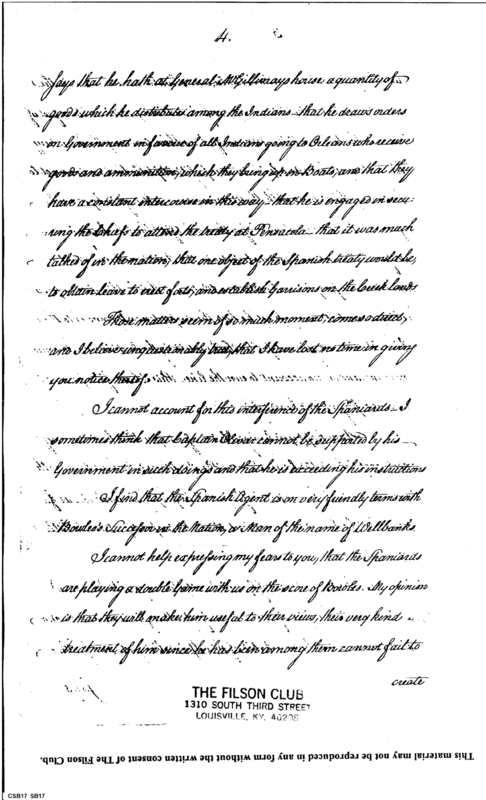 4.
Says that he hath at General McGillivrays house a quantity of
goods which he distributes among the Indians – that he draws orders
on Government in favour of all Indians going to Orleans who receive
goods and ammunition, which they bring up in Boats, and that they
have a constant intercourse in this way – that he is engaged in secu-
ring the Chiefs to attend the treaty at Pensacola – that it was much
talked of in the nation, that one object of the Spanish treaty would be,
to obtain leave to erect forts, and establish Garrisons on the Creek lands
These matters seem of so much moment, come so direct,
and I believe unquestionably true, that I have lost no time in giving
you notice thereof.
I cannot account for this interference of the Spaniards – I
sometimes think that Captain Oliver cannot be supported by his
Government in such doings and that he is exceeding his instructions
I find that the Spanish Agent is on very friendly terms with
Bowles's Successor in the Nation, a Man of the name of Wellbanks
I cannot help expressing my fears to you, that the Spaniards
are playing a double Game with us on the score of Bowles. My opinion
is that they will make him useful to their views, their very kind
treatment of him since he has been among them cannot fail to
create
THE FILSON CLUB
1310 SOUTH THIRD STREET
LOUISVILLE, KY. 40208
This material may not be reproduced in any form without the written consent of The Filson Club.
CSB17 SB17